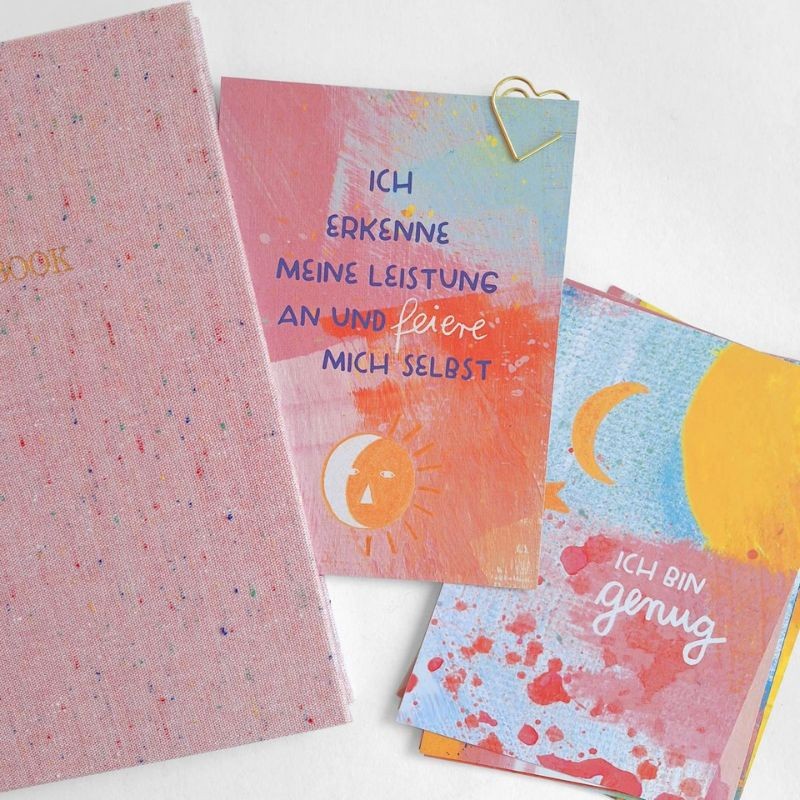 BOOK
ICH
ERKENNE
MEINE LEISTUNG
AN UND feiere
MICH SELBST
ICH BIN
genug